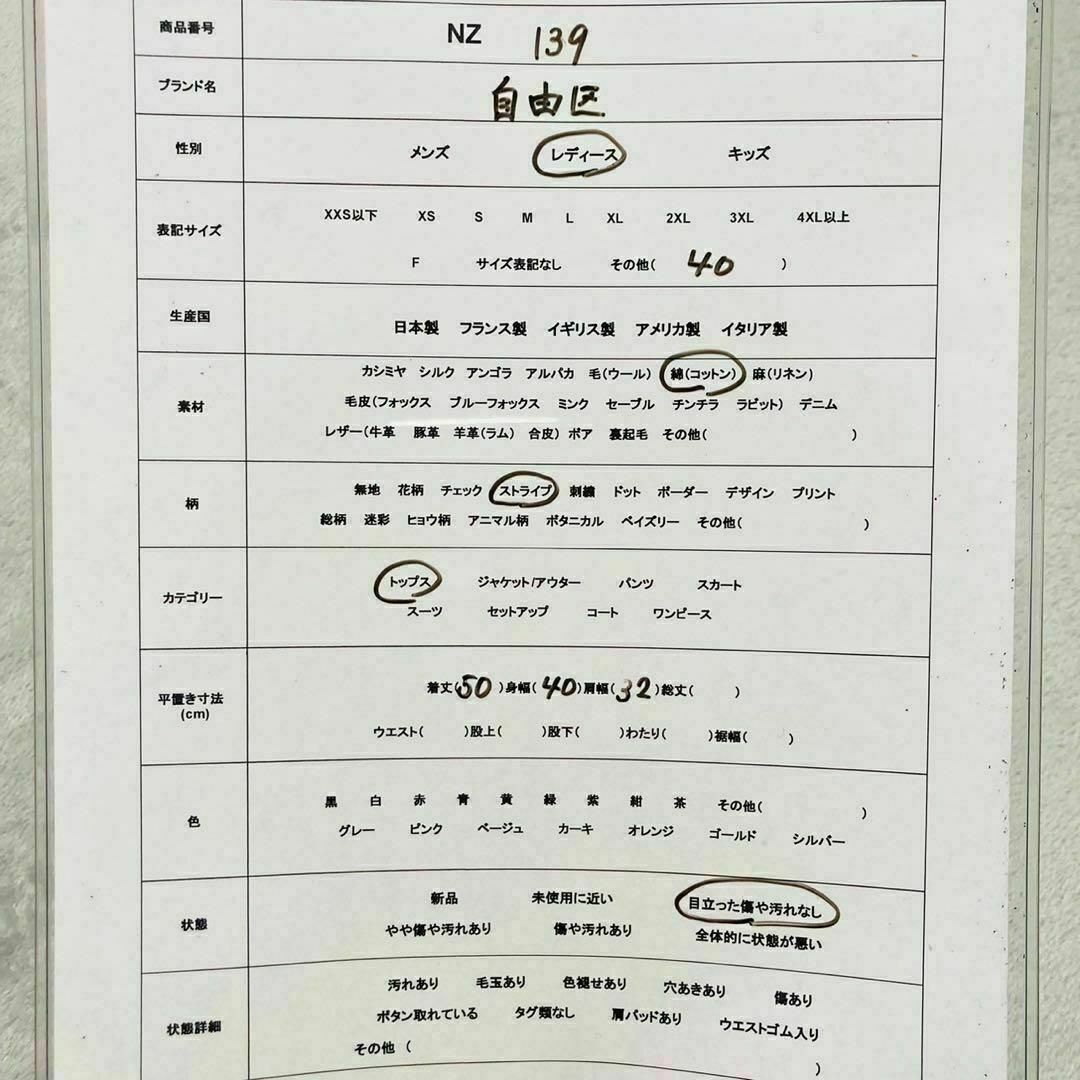 商品番号 NZ 139
ブランド名 自由区
性別 メンズ レディース キッズ
表記サイズ
XXS以下 XS S M L XL 2XL 3XL 4XL以上
F サイズ表記なし その他( 40 )
生産国 日本製 フランス製 イギリス製 アメリカ製 イタリア製
素材
カシミヤ シルク アンゴラ アルパカ 毛(ウール) 綿(コットン) 麻(リネン)
毛皮(フォックス ブルーフォックス ミンク セーブル チンチラ ラビット) デニム
レザー(牛革 豚革 羊革(ラム) 合皮) ボア 裏起毛 その他( )
柄
無地 花柄 チェック ストライプ 刺繍 ドット ボーダー デザイン プリント
総柄 迷彩 ヒョウ柄 アニマル柄 ボタニカル ペイズリー その他( )
カテゴリー
トップス ジャケット/アウター パンツ スカート
スーツ セットアップ コート ワンピース
平置き寸法
(cm)
着丈(50)身幅(40)肩幅(32)総丈( )
ウエスト( )股上( )股下( )わたり( )裾幅( )
色
黒 白 赤 青 黄 緑 紫 紺 茶 その他( )
グレー ピンク ベージュ カーキ オレンジ ゴールド シルバー
状態
新品 未使用に近い 目立った傷や汚れなし
やや傷や汚れあり 傷や汚れあり 全体的に状態が悪い
状態詳細
汚れあり 毛玉あり 色褪せあり 穴あきあり 傷あり
ボタン取れている タグ類なし 肩パッドあり ウエストゴム入り
その他 ( )